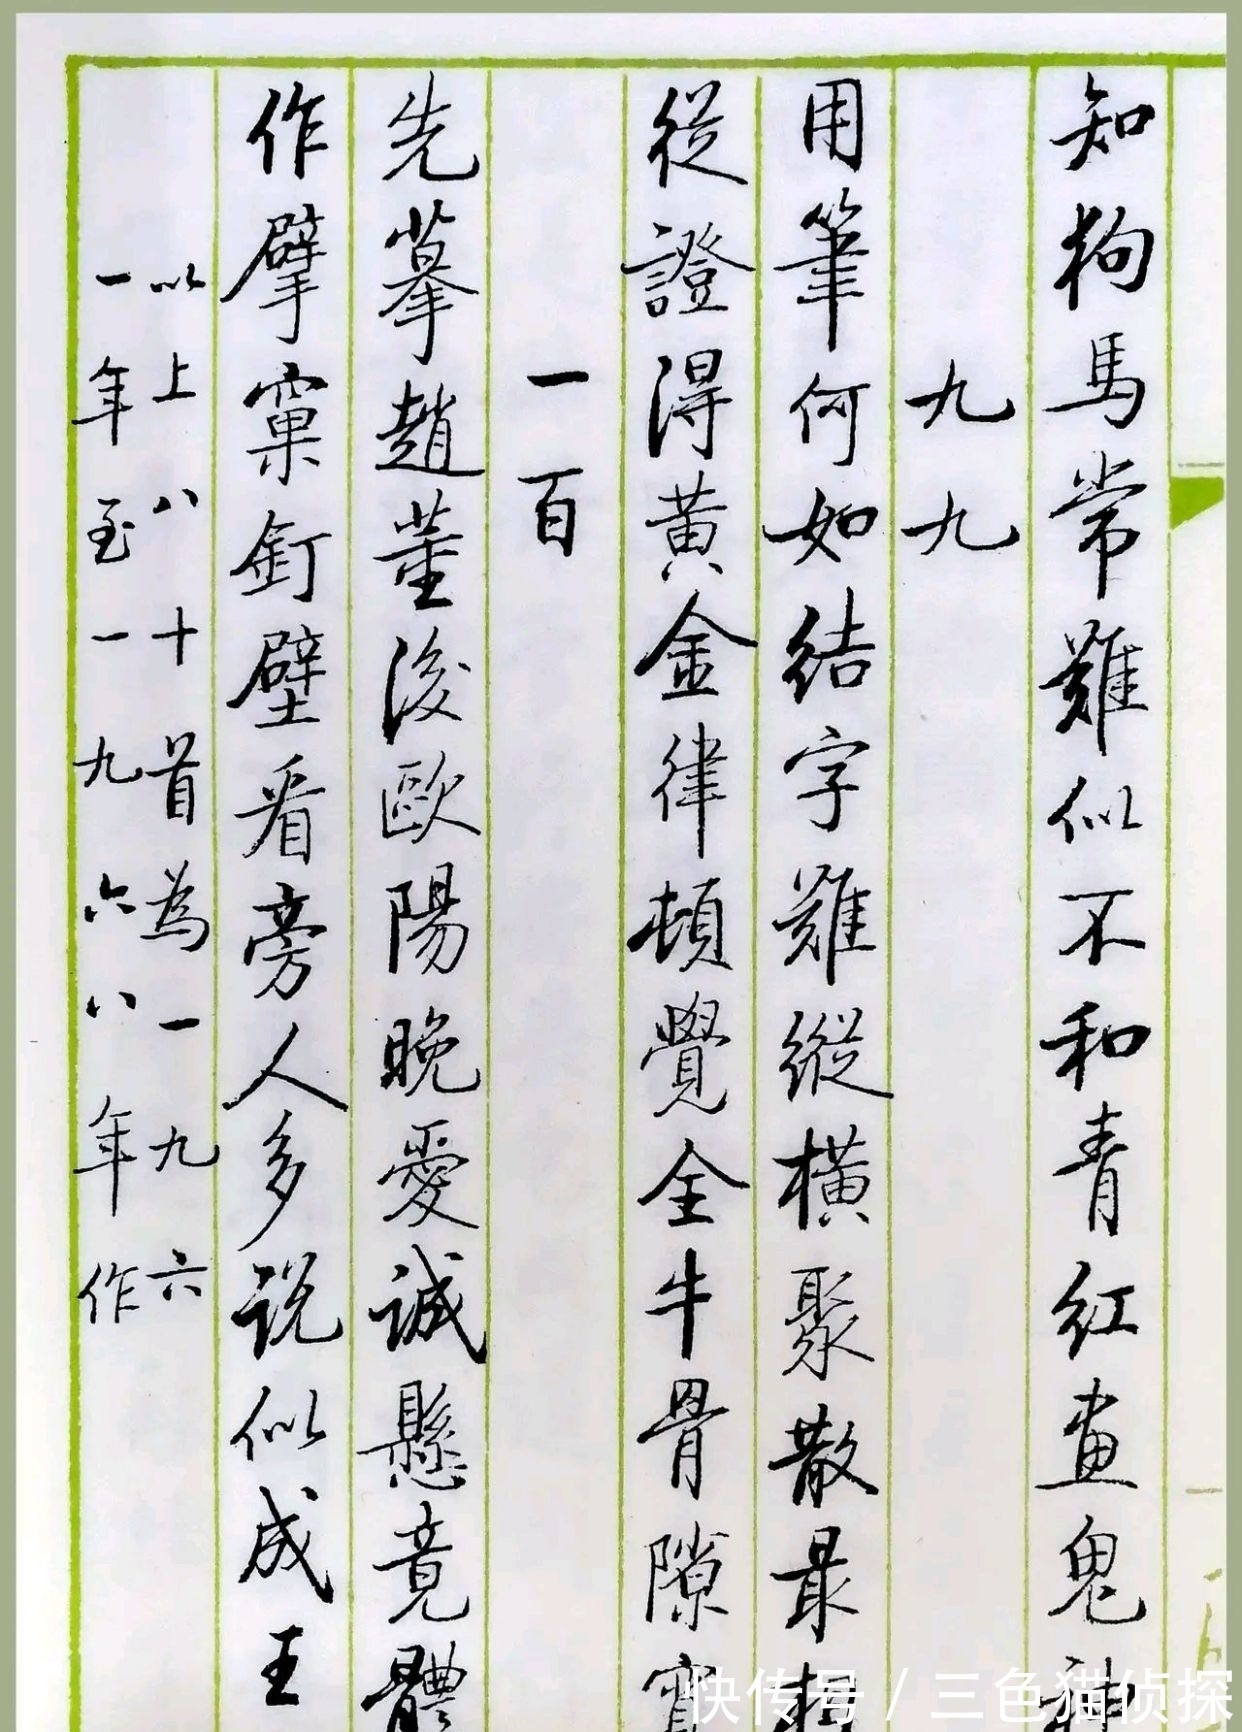 知狗馬常難似不和青紅畫鬼神
九九
用筆何如結字難縱橫聚散最相
從證得黃金律頓覺全牛骨隙寬
一百
先摹趙董後歐陽晚愛誠懸竟體
作擘窠釘壁看旁人多說似成王
以上八十首為一九六
一年至一九六八年作
快传号 / 三色猫侦探